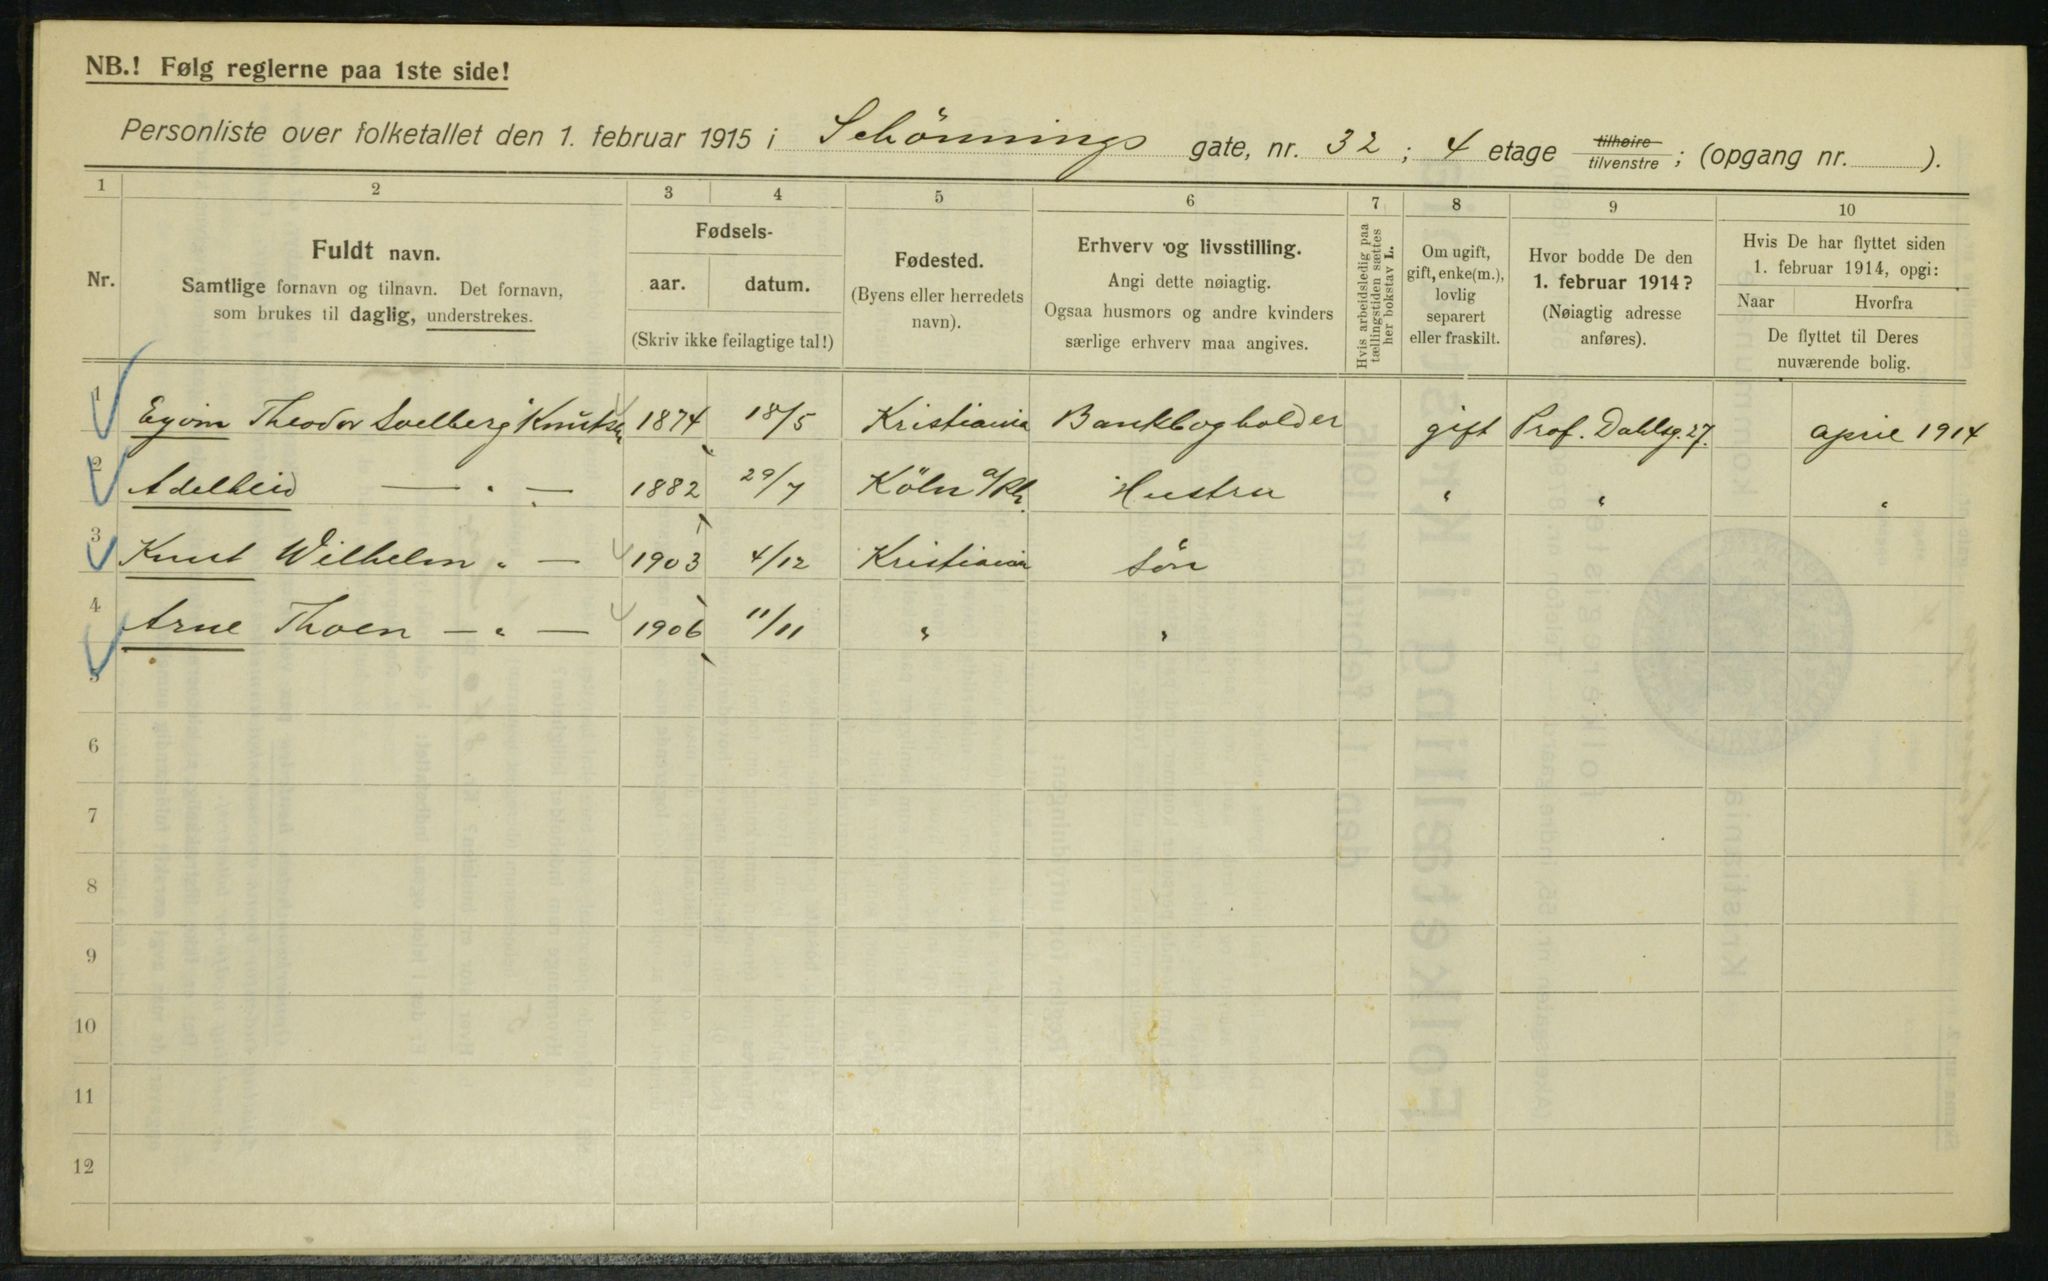 NB.! Følg reglerne paa 1ste side!
Personliste over folketallet den 1. februar 1915 i Schönnings gate, nr. 32 ; 4 etage tilhøire tilvenstre ; (opgang nr. ).
1 2 3 4 5 6 7 8 9 10
Nr.
Fuldt navn.
Samtlige fornavn og tilnavn. Det fornavn,
som brukes til daglig, understrekes.
Fødsels-
aar. datum.
(Skriv ikke feilagtige tal!)
Fødested.
(Byens eller herredets
navn).
Erhverv og livsstilling.
Angi dette nøiagtig.
Ogsaa husmors og andre kvinders
særlige erhverv maa angives.
Hvis arbeidsledig paa
tællingstiden sættes
her bokstav L.
Om ugift,
gift, enke(m.),
lovlig
separert
eller fraskilt.
Hvor bodde De den
1. februar 1914?
(Nøiagtig adresse
anføres).
Hvis De har flyttet siden
1. februar 1914, opgi:
Naar Hvorfra
De flyttet til Deres
nuværende bolig.
1 Eyvin Theodor Soelberg Knutsen 1874 18/5 Kristiania Bankbogholder gift Prof. Dahlsg. 27. april 1914
2 Adelheid — " — 1882 29/7 Köln a/Rh. Hustru " " "
3 Knut Wilhelm " — 1903 4/12 Kristiania Sön
4 Arne Thoen — " — 1906 11/11 " "
5
6
7
8
9
10
11
12